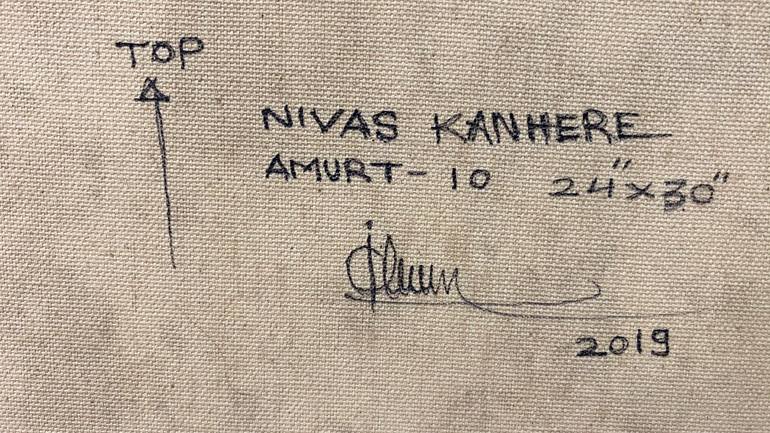 TOP
NIVAS KANHERE
AMURT-10 24"x30"
2019